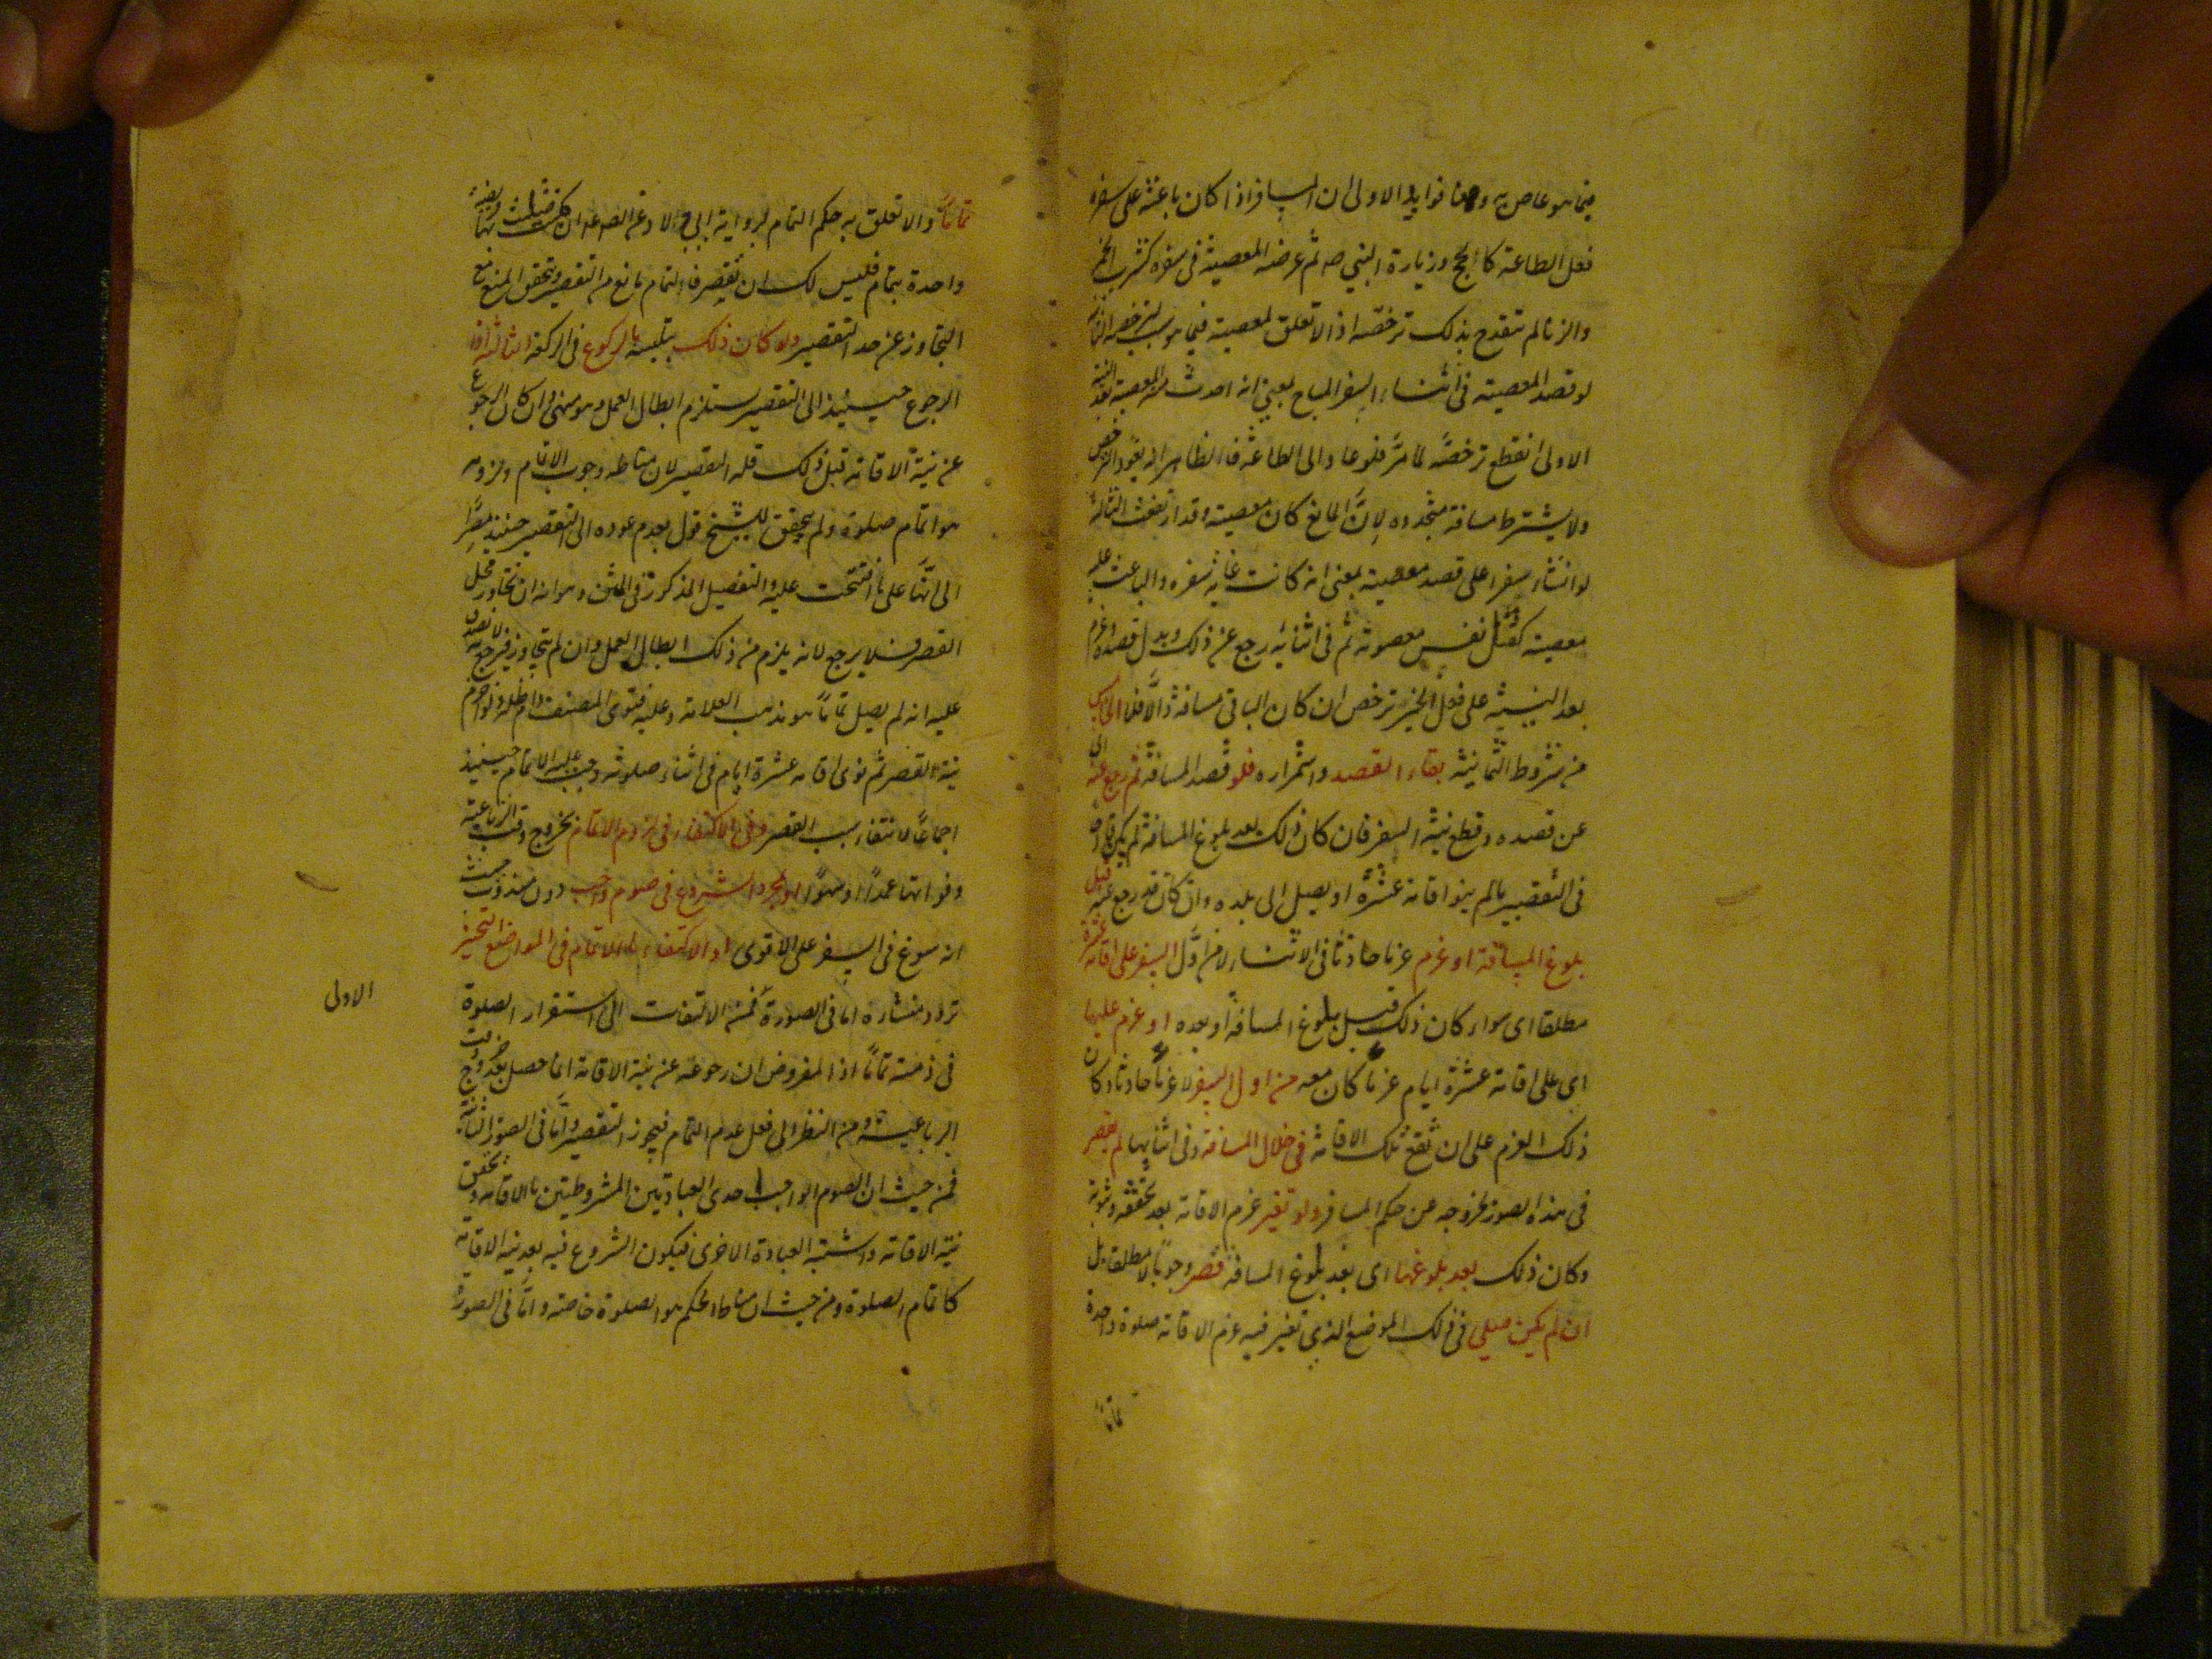 فيما هو عاص به وههنا فوايد الاولى ان المسافر اذا كان باعثه على سفره
فعل الطاعة كالحج وزيارة النبي ص ثم عرضه المعصية في سفره كشرب الخمر
والزنا لم تقدح بذلك ترخصه اذ لا تعلق لمعصية فيما هو سبب لترخصه الثانية
لو قصد المعصية في اثناء السفر المباح بمعنى انه احدث المعصية بعد النية
الاولى انقطع ترخصه لما مر فلو عاد الى الطاعة فالظاهر انه يعود الترخص
ولا يشترط مسافة متجدده لان المانع كان معصية وقد ارتفعت الثالثة
لو انشاء سفرا على قصد معصية بمعنى انه كانت غاية سفره والباعث عليه
معصية كقتل نفس معصومة ثم في اثنائه رجع عن ذلك وبدل قصده وعزم
بعد النية على فعل الخير ترخص ان كان الباقي مسافة والا فلا الى
من شروط الثمانية بقاء القصد واستمراره فلو قصد المسافة ثم رجع عنه اى
عن قصده وقطع نية السفر فان كان ذلك بعد بلوغ المسافة لم يكن
في التقصير ما لم ينو اقامة عشرة او يصل الى بلده وان كان قد رجع عنه قبل
بلوغ المسافة او عزم عزما حادثا في الاثناء لا من اول السفر على اقامة عشرة
مطلقا اى سواء كان ذلك قبل بلوغ المسافة او بعده او عزم عليها
اى على اقامة عشرة ايام عزما كان معه من اول السفر لا عزما حادثا وكان
ذلك العزم على ان تقع تلك الاقامة في خلال المسافة وفي اثنائها لم يقصر
في هذه الصور لخروجه عن حكم المسافر ولو تغير عزم الاقامة بعد تحققه وثبوته
وكان ذلك بعد بلوغها اى بعد بلوغ المسافة قصر وجوبا لا مطلقا بل
ان لم يكن صلى في ذلك الموضع الذي تغير فيه عزم الاقامة صلوة واحدة
تماما
تماما والا تعلق به حكم التمام لرواية ابي ولاد عن الصادق ع ان كنت صليت بها فريضة
واحدة بتمام فليس لك ان تقصر فالتمام مانع من التقصير وتحقق المنع مع
التجاوز عن حد التقصير ولو كان ذلك بتلبسه بالركوع في الركعة الثالثة اذ
الرجوع حينئذ الى التقصير يستلزم ابطال العمل وهو منهي وان كان الرجوع
عن نية الاقامة قبل ذلك فله التقصير لان مناط وجوب الاتمام ولزومه
هو اتمام صلوة ولم يتحقق للشيخ قول بعدم عوده الى التقصير حينئذ
الى انها على ما افتتحت عليه والتفصيل المذكورة في المتن وهو انه ان تجاوز محل
القصر فلا يرجع لانه يلزم من ذلك ابطال العمل وان لم يتجاوز فيرجع لانه يصدق
عليه انه لم يصل تماما هو مذهب العلامة وعليه فتوى المصنف
نية القصر ثم نوى اقامة عشرة ايام في اثناء صلوته وجب عليه الاتمام حينئذ
اجماعا لانتفاء سبب القصر وفي الاكتفاء في لزوم الاتمام بخروج وقت الرباعية
وفواتها عمدا او سهوا او بمجرد الشروع في صوم واجب دون مندوب حيث
انه سوغ في السفر على الاقوى او الاكتفاء بالاتمام في المواضع التخيير
تردد منشاءه اما في الصورة فمن الالتفات الى استقرار الصلوة
الاولى
في ذمته تماما اذ المفروض ان رجوعه عن نية الاقامة انما حصل بعد خروج وقت
الرباعية ومن النظر الى فعل عدم التمام فيجوز التقصير واما في الصورة الثانية
فمن حيث ان الصوم الواجب احدى العبادتين المشروطتين بالاقامة وتحقق
نية الاقامة واشبه العبادة الاخرى فيكون الشروع فيه بعد نية الاقامة
كاتمام الصلوة ومن حيث ان مناط الحكم هو الصلوة خاصة واما في الصورة